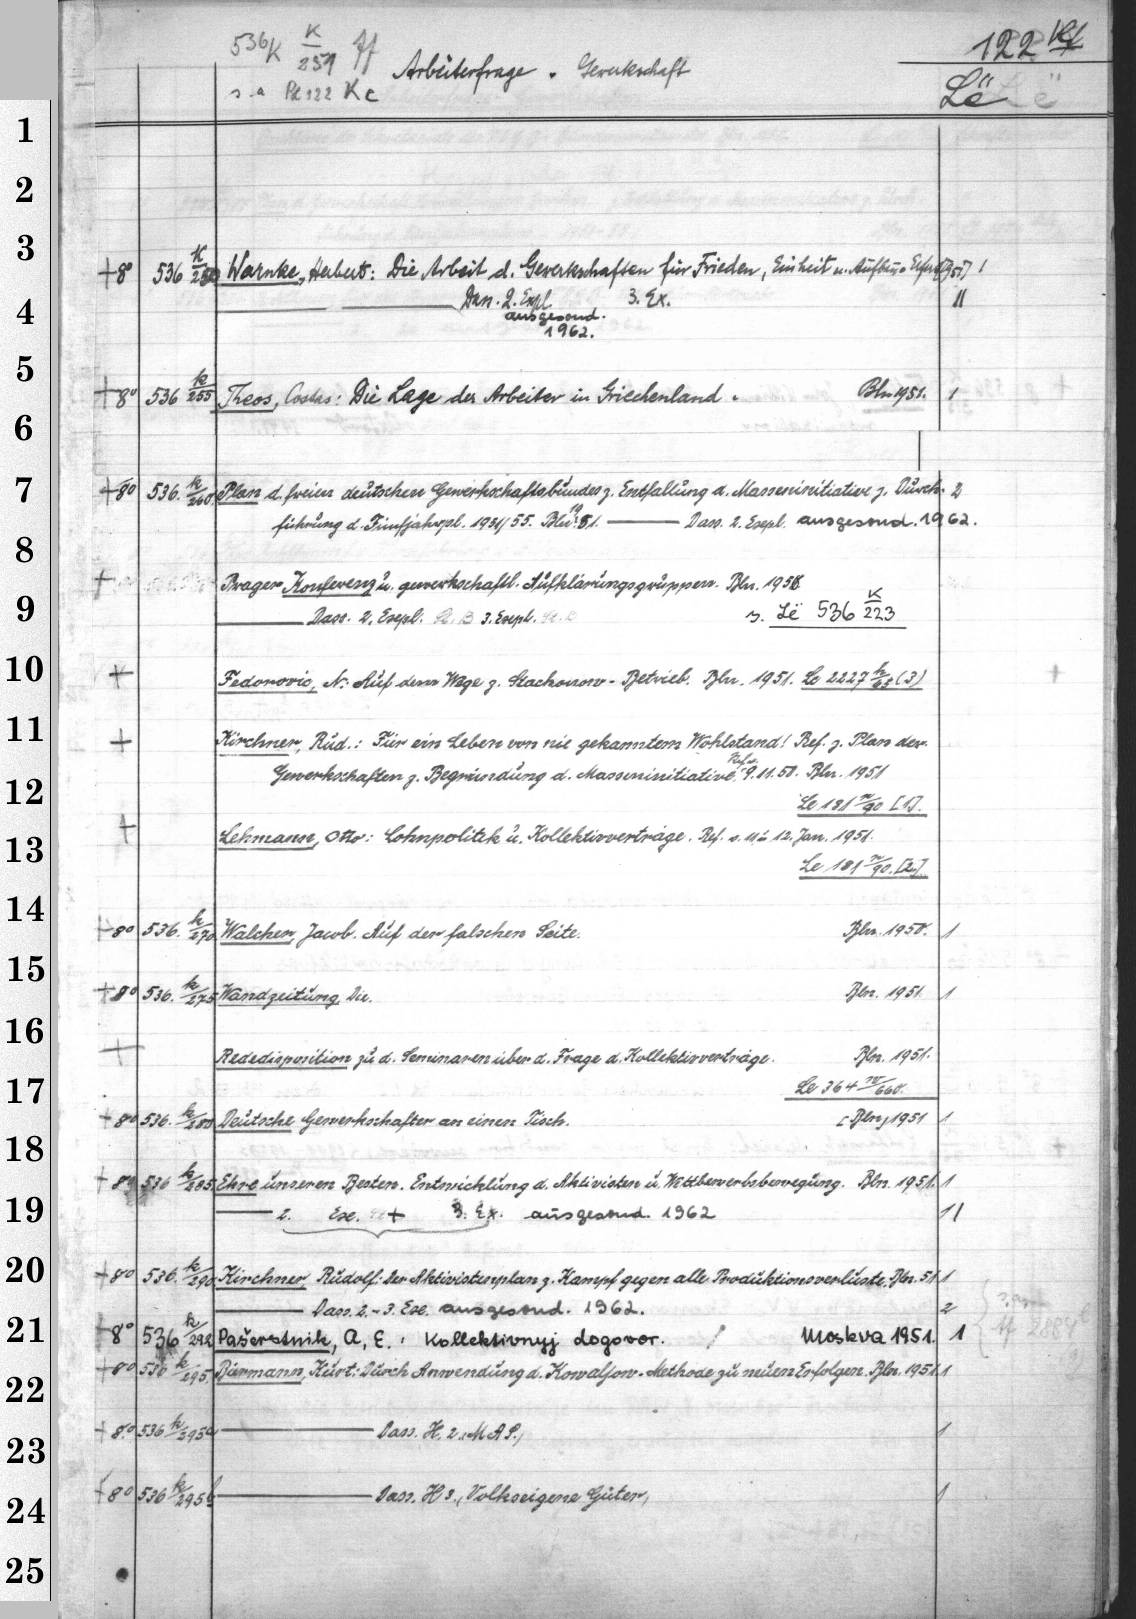 536 K K/257 ff 122 Kf
Arbeiterfrage. Gewerkschaft
s. a Pl 122 Kc Lë
1
2
3
+ 8° 536 K/250 Warnke, Herbert: Die Arbeit d. Gewerkschaften für Frieden, Einheit u. Aufbau. 1
4
Das. 2. Expl. 3. Ex. II
ausgesond.
1962.
5
+ 8° 536 k/255 Theos, Costas: Die Lage der Arbeiter in Griechenland. Bln 1951. 1
6
7
+ 8° 536. k/260 Plan d. freien deutschen Gewerkschaftsbundes z. Entfaltung d. Masseninitiative z. Durch- 2
führung d. Fünfjahrpl. 1951/55. Bln. 1951. Dass. 2. Exepl. ausgesond. 1962.
8
+ Prager Konferenz u. gewerkschaftl. Aufklärungsgruppen. Bln. 1950
9
Dass. 2. Exepl. 3. Exepl. s. Lë 536 K/223
10
+ Fedorovic, N.: Auf dem Wege z. Stachonow-Betrieb. Bln. 1951. Le 2227 k/63 (3) +
11
+ Kirchner, Rud.: Für ein Leben von nie gekanntem Wohlstand! Ref. z. Plan der
Gewerkschaften z. Begründung d. Masseninitiative. Ref. v. 9.11.50. Bln. 1951
12
Le 181 n/90 [1].
13
+ Lehmann, Otto: Lohnpolitik u. Kollektivverträge. Ref. v. 11. u. 12. Jan. 1951.
Le 181 n/90. [2].
14
+ 8° 536. k/270 Walcher, Jacob. Auf der falschen Seite. Bln. 1950. 1
15
+ 8° 536. k/275 Wandzeitung, Die. Bln. 1951 1
16
+ Rededisposition zu d. Seminaren über d. Frage d. Kollektivverträge. Bln. 1951.
17
Le 364 n/660.
+ 8° 536. k/280 Deutsche Gewerkschafter an einen Tisch. [Bln.] 1951 1
18
+ 8° 536 k/285 Ehre unseren Besten. Entwicklung d. Aktivisten u. Wettbewerbsbewegung. Bln. 1951. 1
19
2. Exe. + 3. Ex. ausgesond. 1962 11
20
+ 8° 536. k/290 Kirchner, Rudolf: Der Aktivistenplan z. Kampf gegen alle Produktionsverluste. Bln. 51 1
Dass. 2.-3. Exe. ausgesond. 1962. 2
21
+ 8° 536 k/292 Pašerstnik, A. E.: Kollektivnyj dogovor. Moskva 1951. 1
22
+ 8° 536 k/295. Biermann, Kurt: Durch Anwendung d. Kowaljow-Methode zu neuen Erfolgen. Bln. 1951. 1
23
+ 8° 536 k/295a Dass. H. 2. (MAS.) 1
24
+ 8° 536 k/295b Dass. H 3. (Volkseigene Güter) 1
25